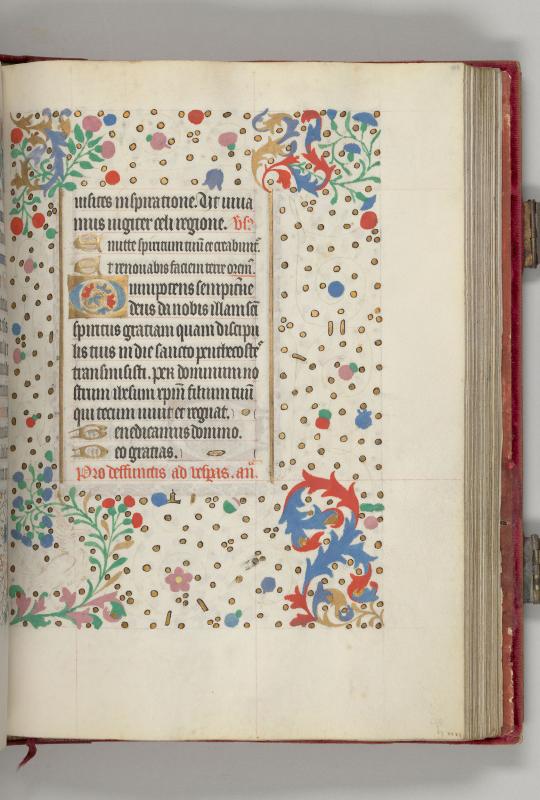 iustes inspiratione. Ut viva
mus iugiter celi regione. Vs.
Emitte spiritum tuum et creabuntur.
Et renovabis faciem terre orem̄.
Omnipotens sempiterne
deus da nobis illam sc̄i
spiritus gratiam quam discipu
lis tuis in die sancto penthecostes
transmisisti. per dominum no
strum ihesum xpm̄ filium tuū
qui tecum vivit et regnat.
Benedicamus domino.
Deo gratias.
Pro deffunctis ad vespas. an̄.